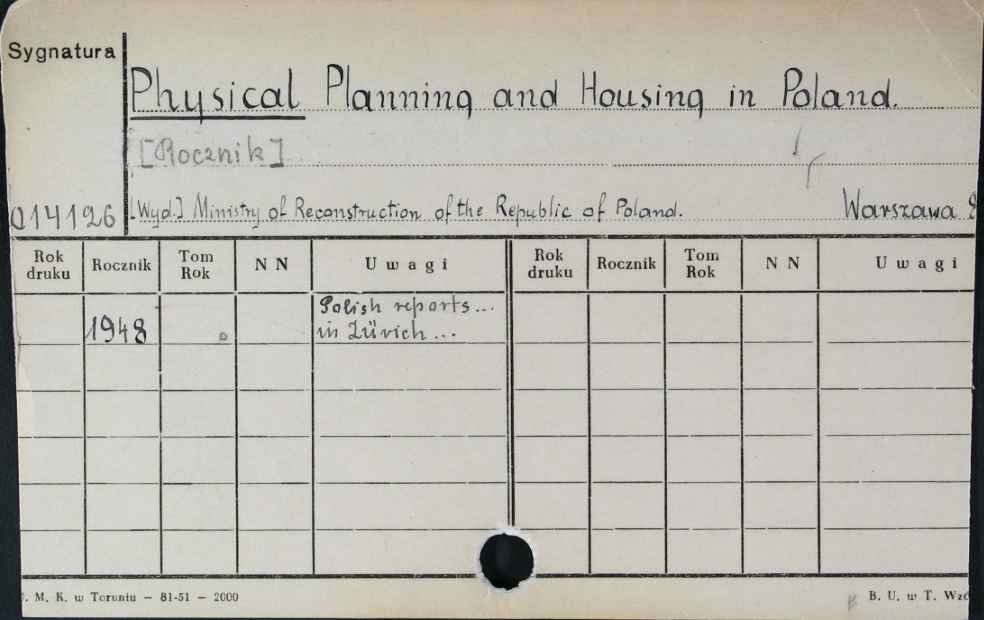 Sygnatura
Physical Planning and Housing in Poland.
[Rocznik]
014126
[Wyd.] Ministry of Reconstruction of the Republic of Poland. Warszawa 8
Rok druku Rocznik Tom Rok N N Uwagi Rok druku Rocznik Tom Rok N N Uwagi
1948 Polish reports...
in Zürich ...
. M. K. w Toruniu — 81-51 — 2000 B. U. w T. Wzó